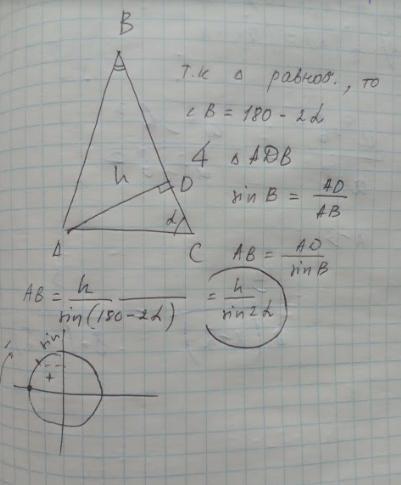 B
т.к △ равноб., то
∠B = 180 - 2α
h
D
α
A
C
4 △ ADB
sin B = AD / AB
AB = AD / sin B
AB = h / sin(180-2α) = h / sin 2α
sin
+